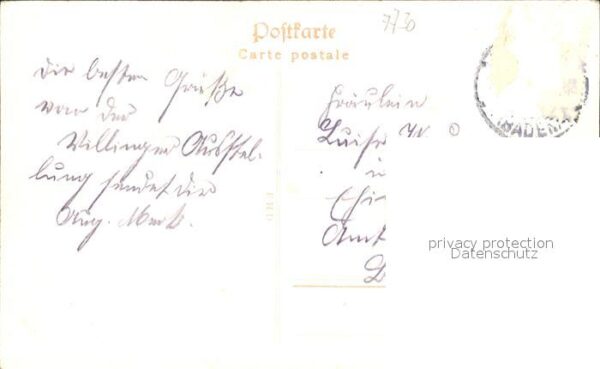 7730
Postkarte
Carte postale
Die besten Grüße
von der
Villinger Ausstel-
lung sendet dir
Aug. Merk.
Fräulein
Luise W
i
Amt
(BADEN)
privacy protection
Datenschutz